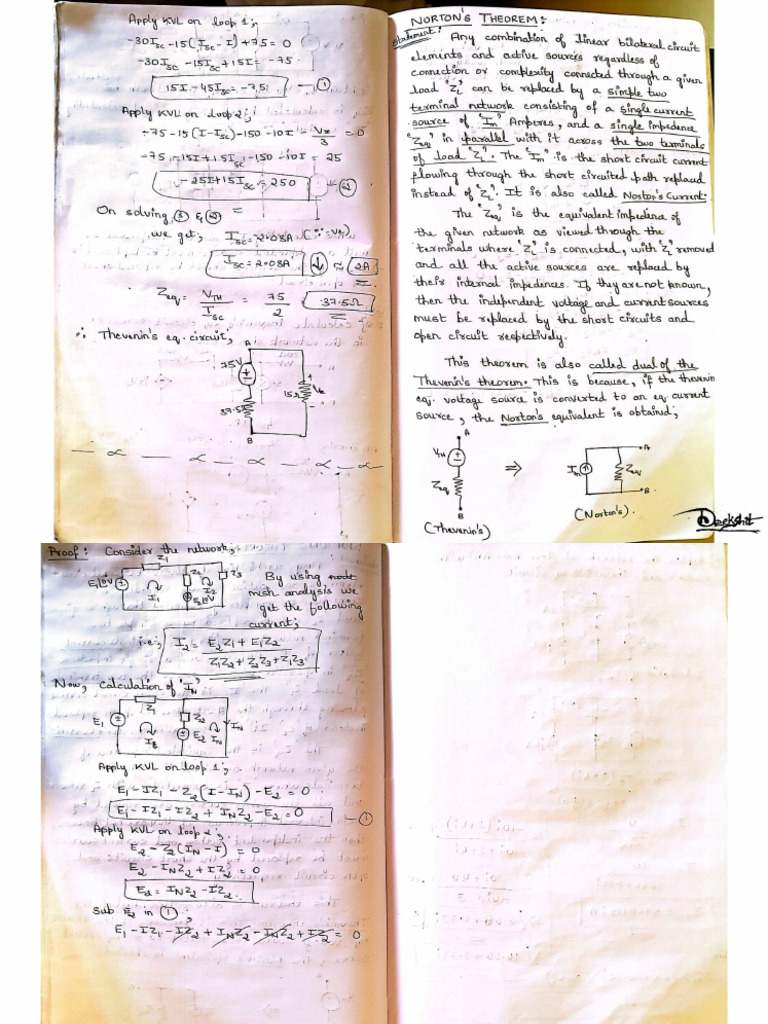 Apply KVL on loop 1;
-30Isc -15(Isc - I) +75 = 0
-30Isc -15Isc +15I = -75
15I - 45Isc = -75 — ①
Apply KVL on loop 2;
-75 -15(I-Isc) -150 -10I - Vx/3 = 0
-75 -15I +15Isc -150 -10I = 25
-25I +15Isc = 250 — ②
On solving ① & ②
we get; Isc = 2.08A (∵ = Vx)
Isc = 2.08A (↓) ≈ 2A
Zeq = VTH/Isc = 75/2 = 37.5Ω
∴ Thevenin's eq. circuit,
A
75V
15Ω
37.5Ω
B
NORTON'S THEOREM:
Statement: Any combination of linear bilateral circuit
elements and active sources regardless of
connection or complexity connected through a given
load 'ZL' can be replaced by a simple two
terminal network consisting of a single current
source of 'IN' Amperes, and a single impedence
'Zeq' in parallel with it across the two terminals
of load 'ZL'. The 'IN' is the short circuit current
flowing through the short circuited path replaced
instead of 'ZL'. It is also called Norton's Current.
The 'Zeq' is the equivalent impedence of
the given network as viewed through the
terminals where 'ZL' is connected, with 'ZL' removed
and all the active sources are replaced by
their internal impedences. If they are not known,
then the independent voltage and current sources
must be replaced by the short circuits and
open circuit respectively.
This theorem is also called dual of the
Thevenin's theorem. This is because, if the thevenin
eq. voltage source is converted to an eq. current
source, the Norton's equivalent is obtained;
A
VTH
Zeq
B
(Thevenin's)
⇒
IN
Zeq
A
B
(Norton's).
Deekshit
Proof: Consider the network,
Z1
Z2
Z3
I1
I2
By using mesh analysis we
get the following
current;
i.e; I2 = E2Z1 + E1Z2 / Z1Z2 + Z2Z3 + Z1Z3
Now, calculation of 'IN'
Z1
E1
Z2
E2
IN
IN
Apply KVL on loop 1;
E1 - IZ1 - Z2(I - IN) - E2 = 0
E1 - IZ1 - IZ2 + INZ2 - E2 = 0 — ①
Apply KVL on loop 2;
E2 - Z2(IN - I) = 0
E2 - INZ2 + IZ2 = 0
E2 = INZ2 - IZ2
sub E2 in ①,
E1 - IZ1 - IZ2 + INZ2 - INZ2 + IZ2 = 0